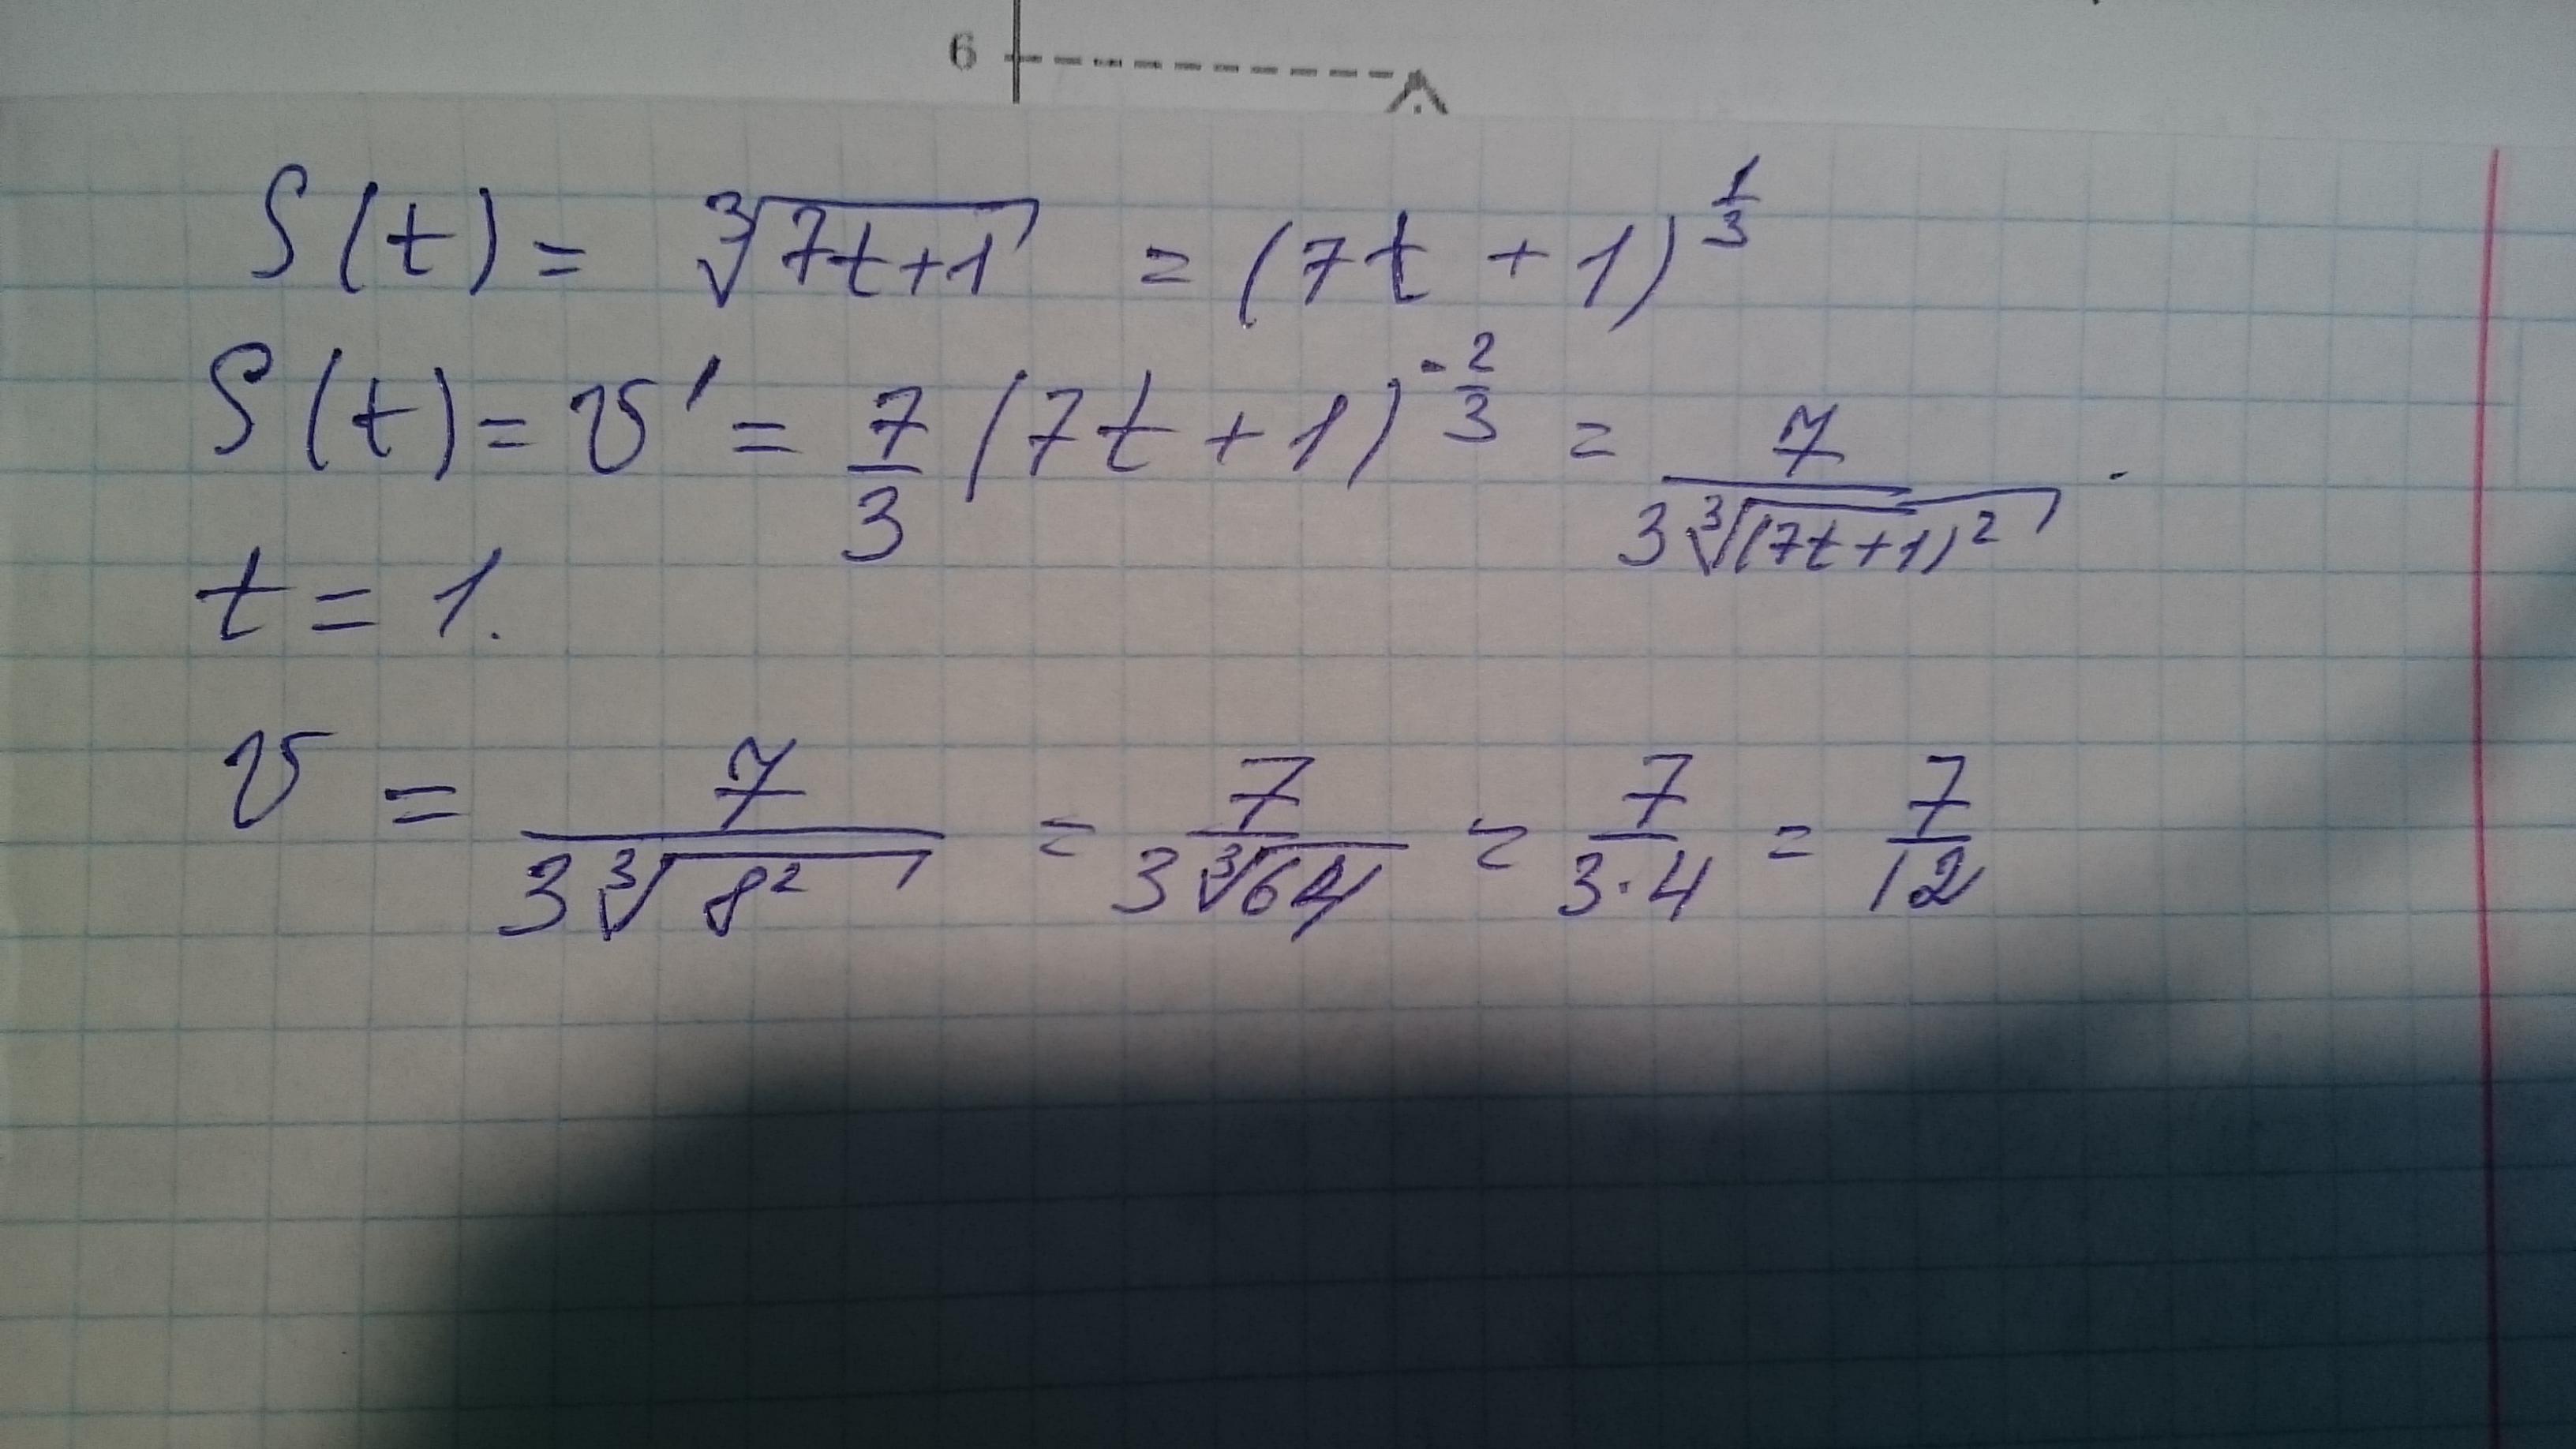 6
S(t) = ∛(7t+1) = (7t + 1)^(1/3)
S(t) = v' = 7/3 (7t + 1)^(-2/3) = 7/(3∛((7t+1)²)) .
t = 1.
v = 7/(3∛(8²)) = 7/(3∛64) = 7/(3·4) = 7/12